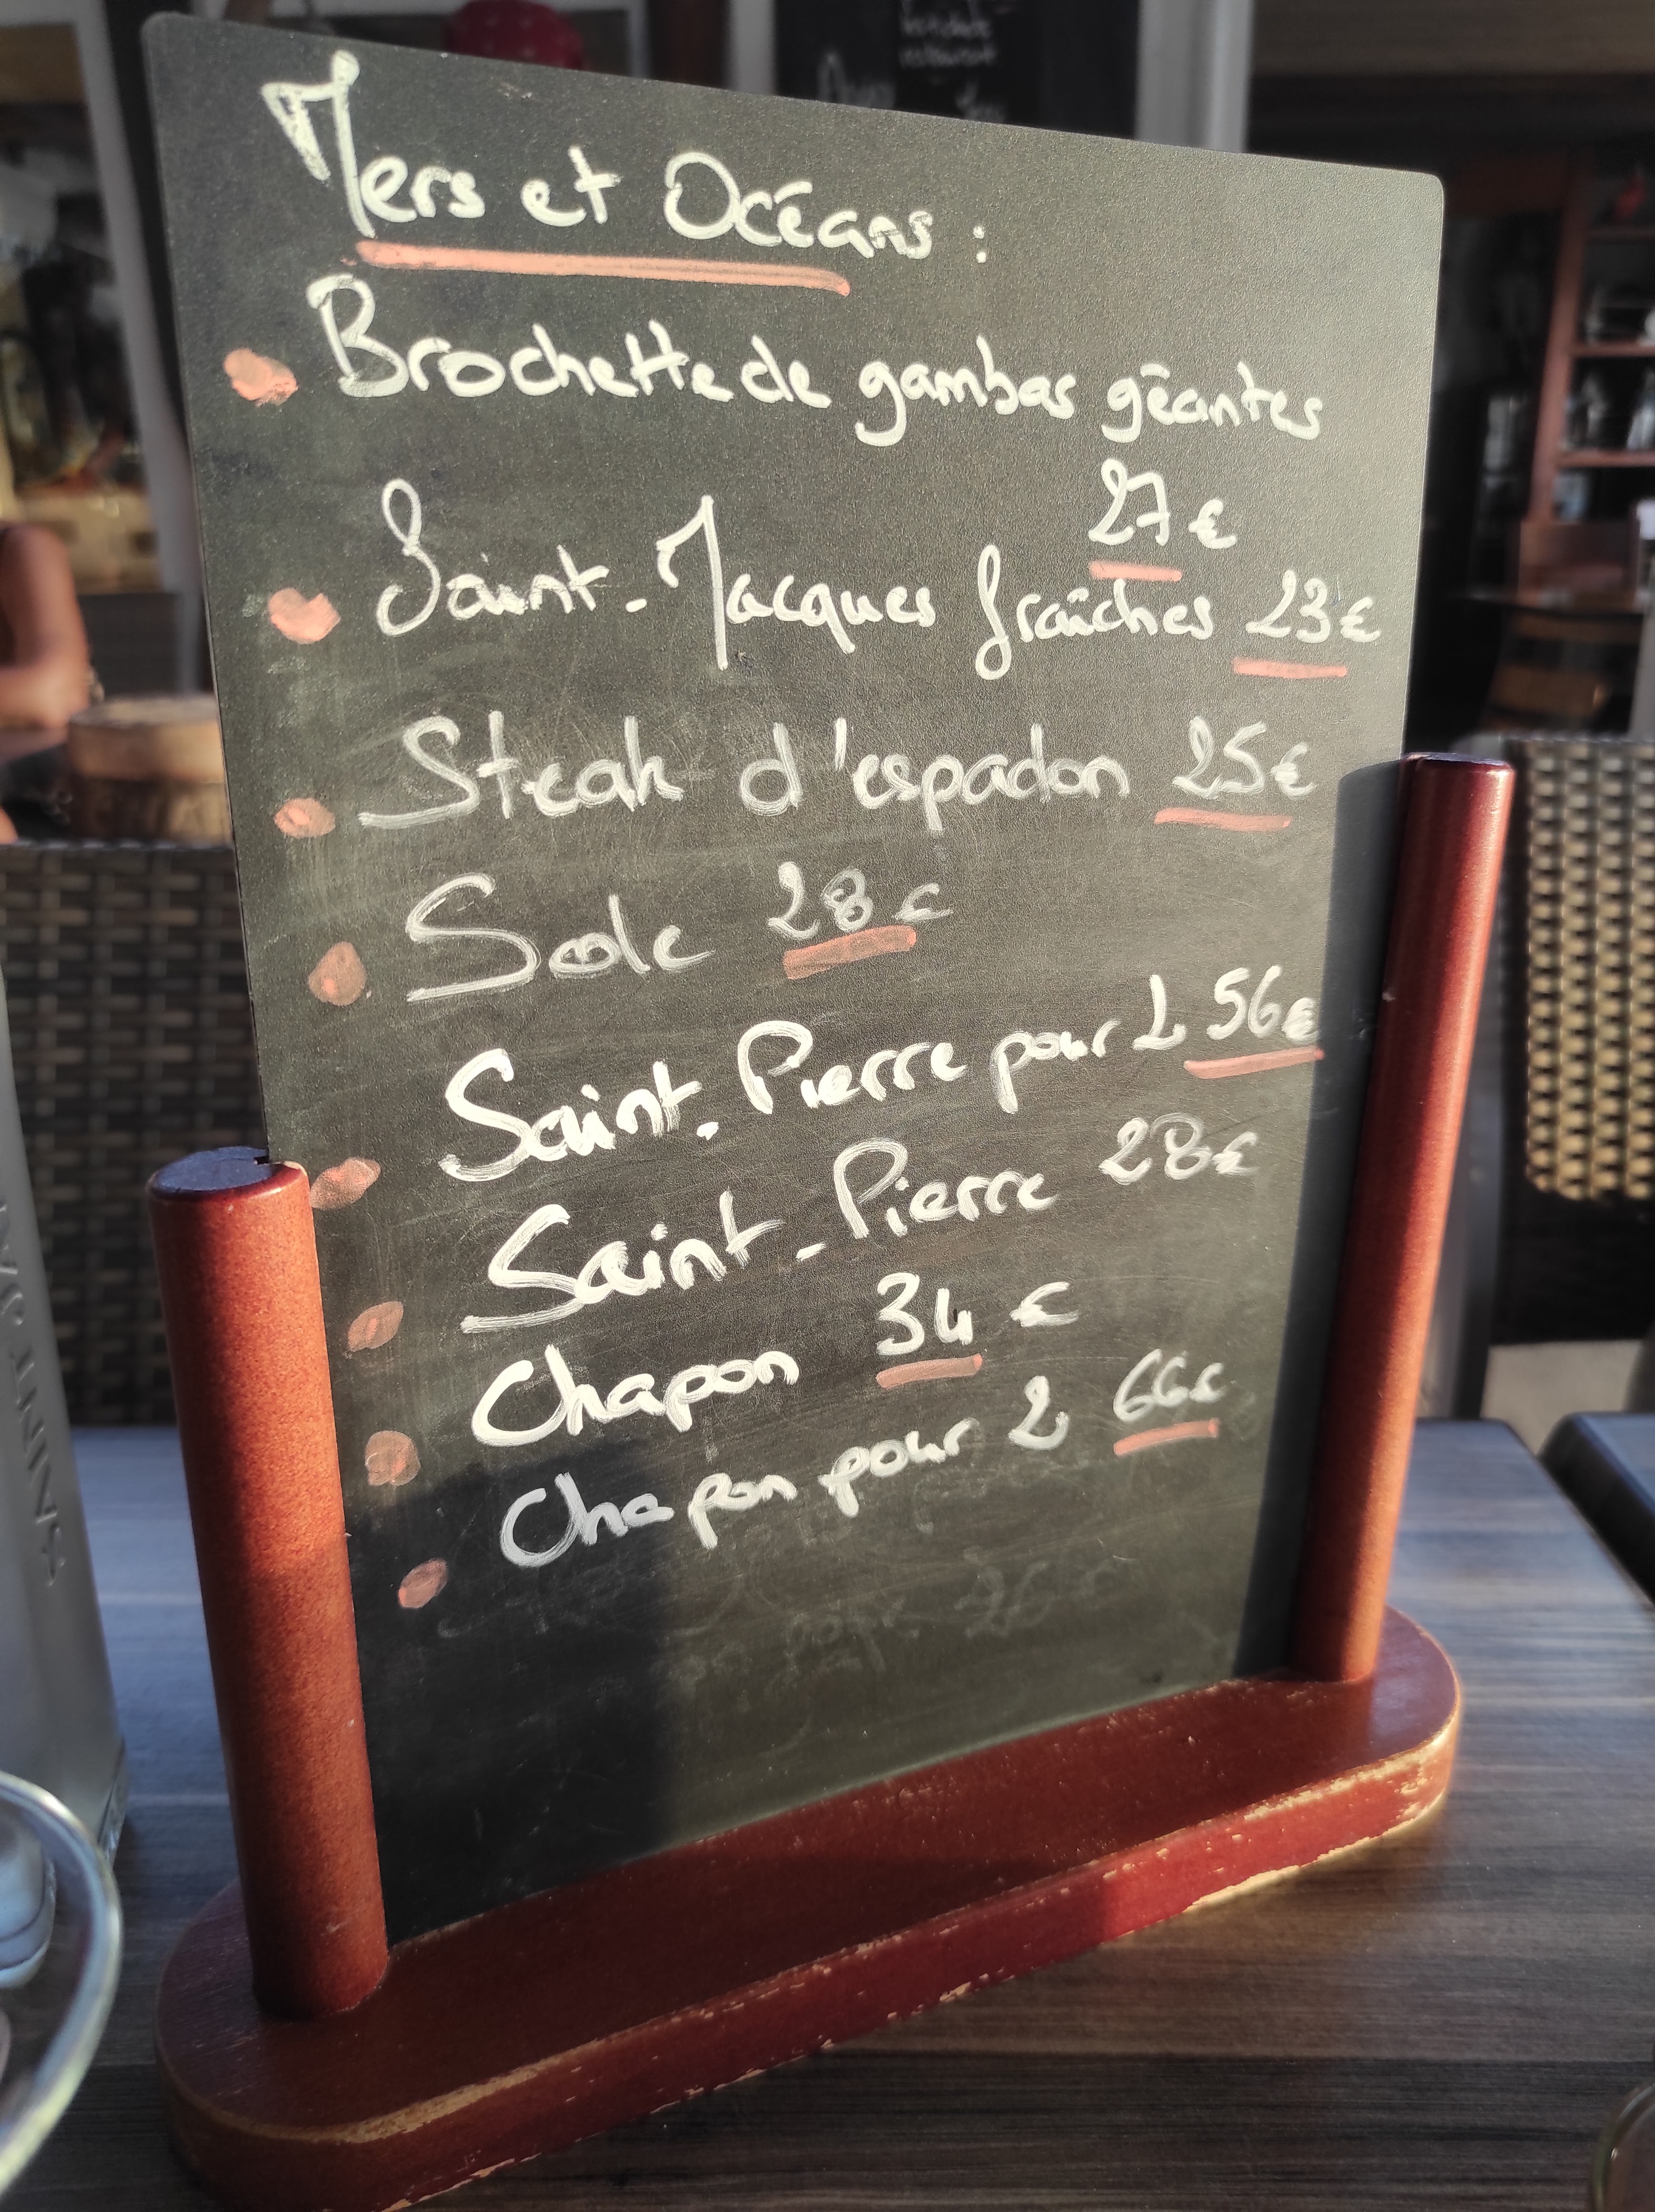 Mers et Océans :
Brochette de gambas géantes
27€
Saint-Jacques fraîches 23€
Steak d'espadon 25€
Sole 28€
Saint-Pierre pour 2 56€
Saint-Pierre 28€
Chapon 34€
Chapon pour 2 66€
SAINT JEAN